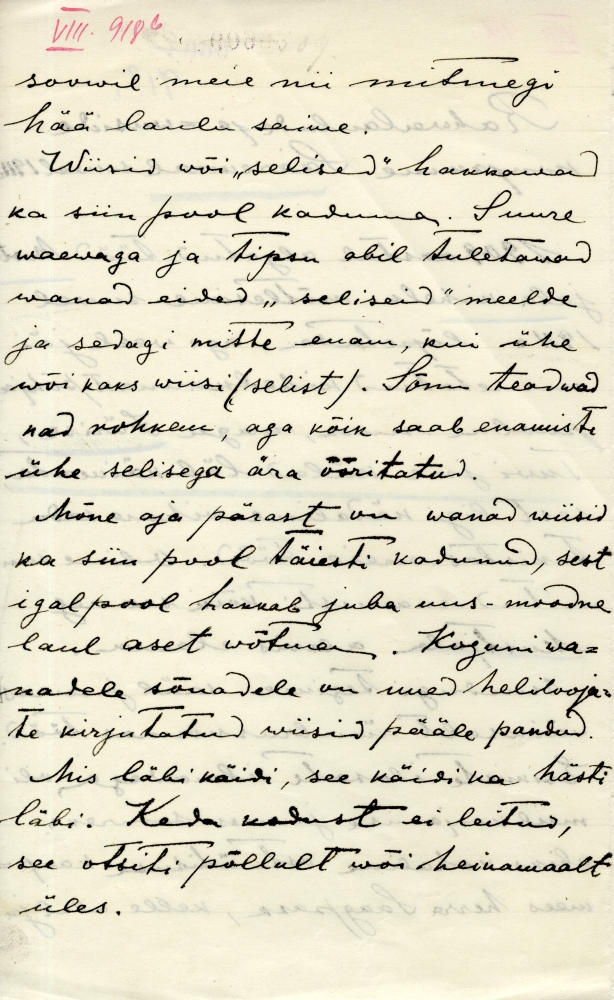 VIII. 918 b
soowil meie nii mitmegi
hää laulu saime.
Wiisid wõi „selised" hakkawad
ka siin pool kaduma. Suure
waewaga ja tipsu abil tuletawad
wanad eided „seliseid" meelde
ja sedagi mitte enam, kui ühe
wõi kaks wiisi (selist). Sõnu teadwad
nad rohkem, aga kõik saab enamiste
ühe selisega ära ööritatud.
Mõne aja pärast on wanad wiisid
ka siin pool täiesti kadunud, sest
igalpool hakkab juba uus-moodne
laul aset wõtma. Koguni wa=
nadele sõnadele on uued helilooja=
te kirjutatud wiisid pääle pandud.
Mis läbi käidi, see käidi ka hästi
läbi. Keda kodust ei leitud,
see otsiti põllult wõi heinamaalt
üles.